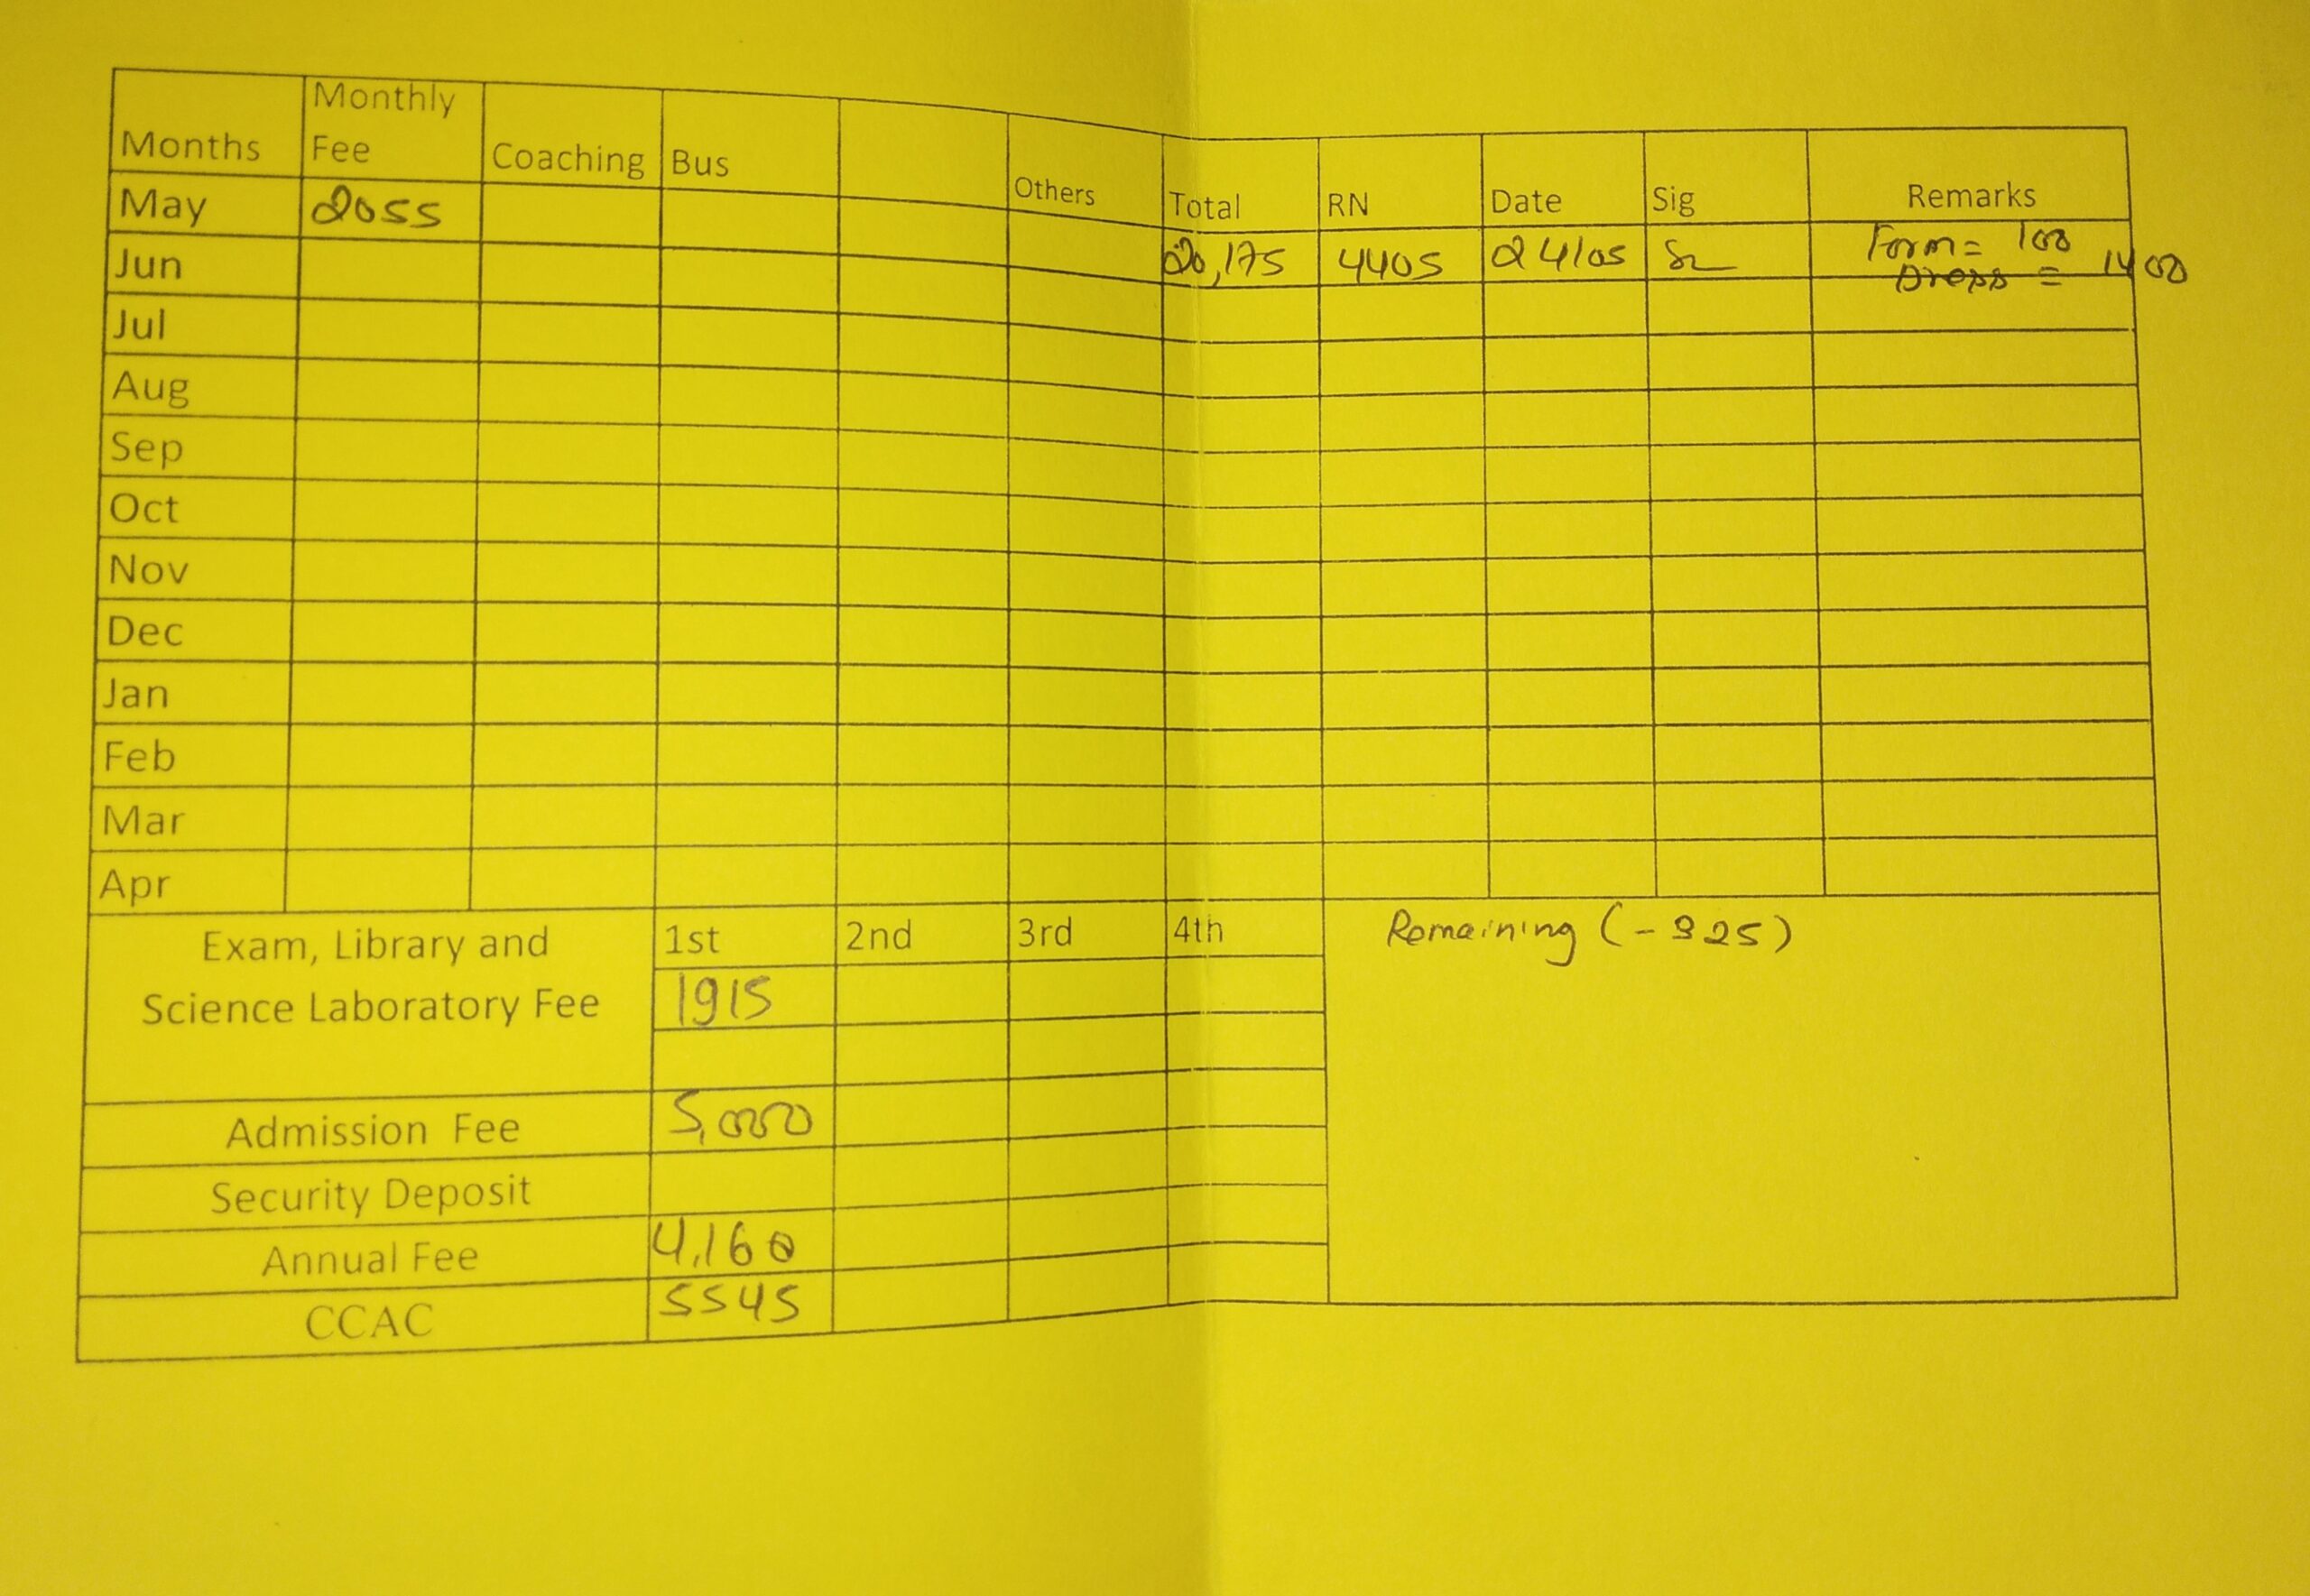 Months Monthly Fee Coaching Bus Others Total RN Date Sig Remarks
May 2055 20,175 4405 24/05 Form = 100
Dress = 1400
Jun
Jul
Aug
Sep
Oct
Nov
Dec
Jan
Feb
Mar
Apr
Exam, Library and 1st 2nd 3rd 4th Remaining (-325)
Science Laboratory Fee 1915
Admission Fee 5,000
Security Deposit
Annual Fee 4,160
CCAC 5545